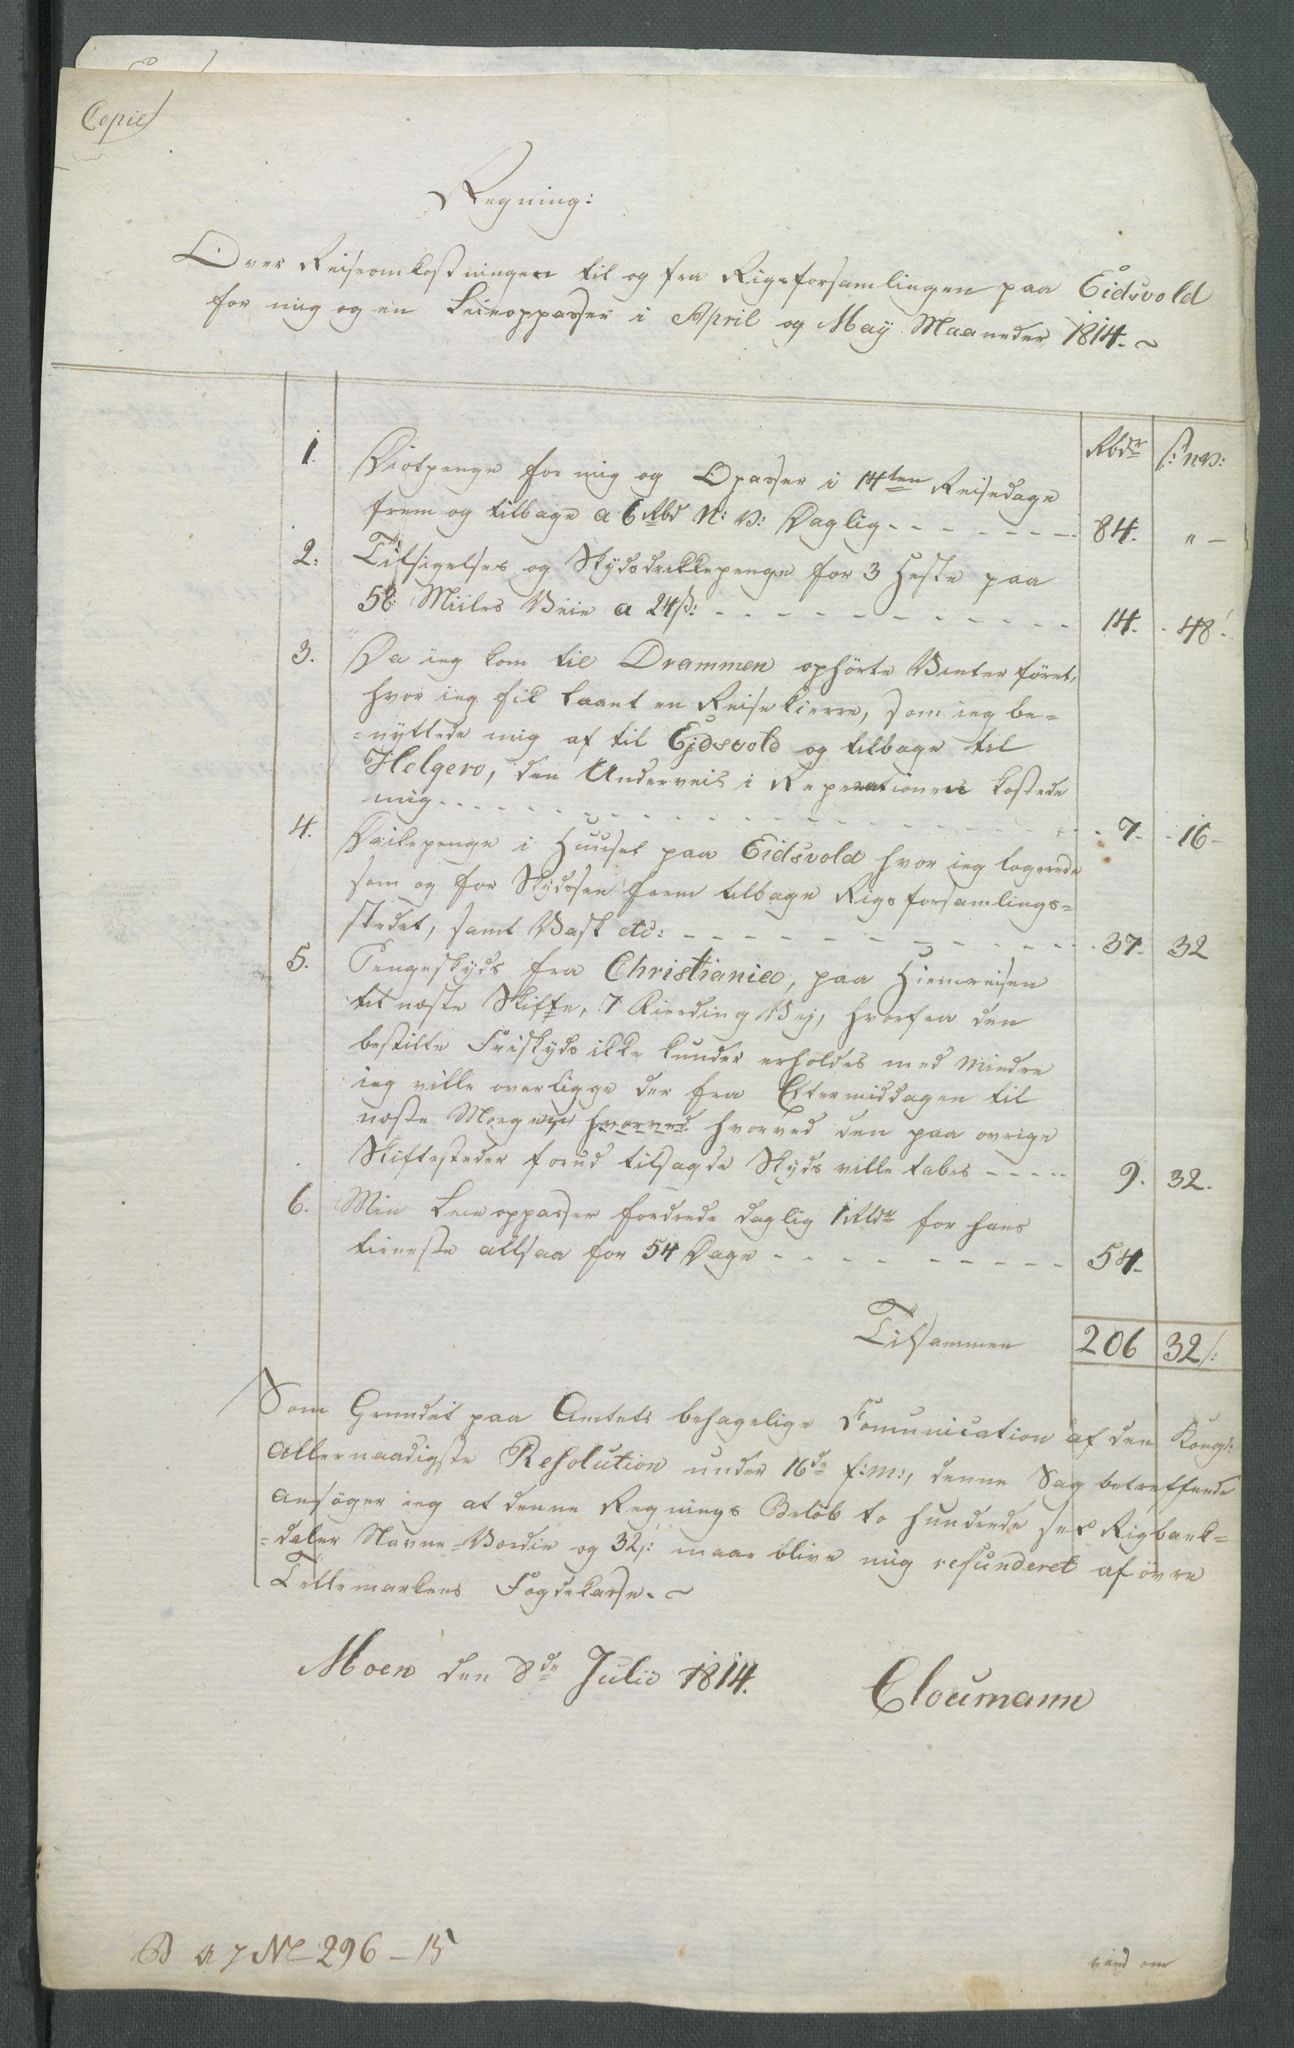 Copie
Regning:
Over Reiseomkostningen til og fra Rigsforsamlingen paa Eidsvold
for mig og en Leieoppasser i April og Maÿ Maaneder 1814.
Rbdr ß: NV:
1. Diætpenge for mig og Opasser i 14ten Reisedage
frem og tilbage a 6 Rbd N: V: Daglig - - - - - - 84. " -
2. Tilsigelses og Skydsdrikkepenge for 3 Heste paa
58 Miiles Veie a 24ß: - - - - - - - - - - - 14. 48.
3. Da ieg kom til Drammen ophørte Vinterføret,
hvor ieg fik laant en Reisekierre, som ieg be-
=nyttede mig af til Ejdsvold og tilbage til
Helgero, den Underveis i Reperationen kostede
mig - - - - - - - - - - - - - - - 7. 16 -
4. Drikepenge i Huuset paa Eidsvold hvor ieg logerede
som og for Skydssen frem tilbage Rigsforsamlings=
stedet, samt Vask etc: - - - - - - - - - - 37. 32
5. Pengeskyds fra Christiania, paa Hiemreisen
til næste Skifte, 7 Fierding Vej, hvorfra den
bestilte Friskyds ikke kunde erholdes med mindre
ieg ville overligge der fra Eftermiddagen til
næste Morgen hvorved hvorved den paa øvrige
Skiftesteder forud tilsagde Skyds ville tabes - - - - 9. 32.
6. Min Leieoppasser fordrede daglig 1 Rbdr for hans
tieneste altsaa for 54 Dage - - - - - - - - - 54.
Tilsammen 206 32/:
Som Grundet paa Amtets behagelige Comunication af den Kongl:
allernaadigste Resolution under 16de f: m:, denne Sag betreffende
ansøger ieg at denne Regnings Beløb to hundrede sex Rigsbank=
=daler Navne=Værdie og 32/: maae blive mig refunderet af øvre
Tellemarkens Fogdekasse.
Moen den 8de Julii 1814. Cloumann
No 296 - 15
vend om